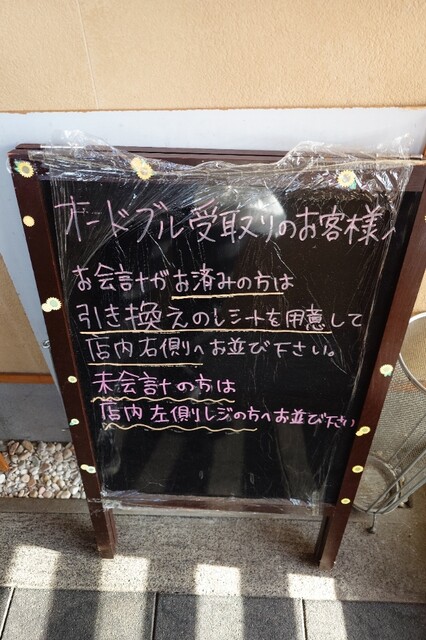 オードブル受取りのお客様へ
お会計がお済みの方は
引き換えのレシートを用意して
店内右側へお並び下さい。
未会計の方は
店内左側レジの方へお並び下さい